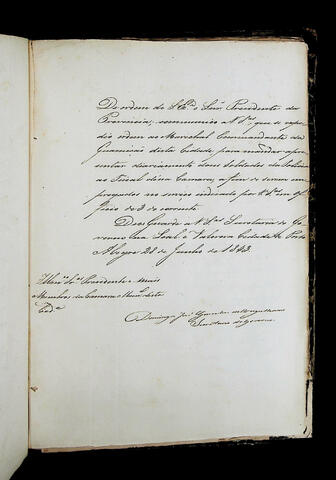 De ordem de S. Exª o Snr. Presidente da
Provincia, communico a VSas que se expe-
dio ordem ao Marechal Commandante da
Guarnição desta Cidade para mandar apre-
sentar diariamente dous Soldados da Policia
ao Fiscal dessa Camara, a fim de serem em-
pregados no serviço indicado por VSas em of-
ficio de 3 do corrente.
Deos Guarde a VSas Secretaria do Go-
verno na Leal e Valorosa Cidade de Porto
Alegre 28 de Junho de 1843.
Illmos Snres Presidente e mais
Membros da Camara Municipal desta
Cide
Domingos José Gonçalves de Magalhaens
Secretario do Governo